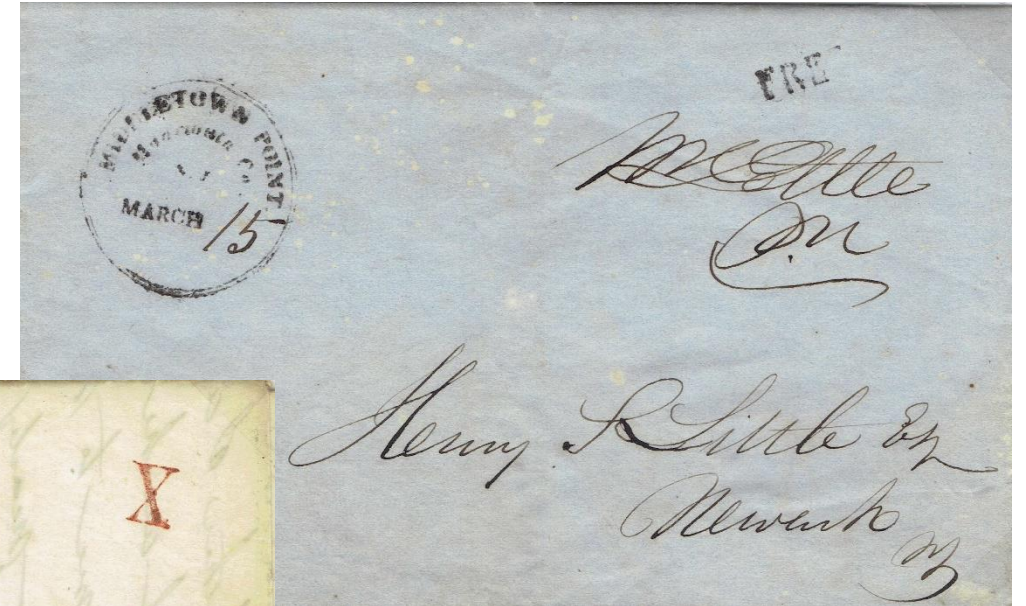 MIDDLETOWN POINT
Monmouth Co.
N J
MARCH 15
FRE
P.M
Henry S Little Esq
Newark
NJ
X